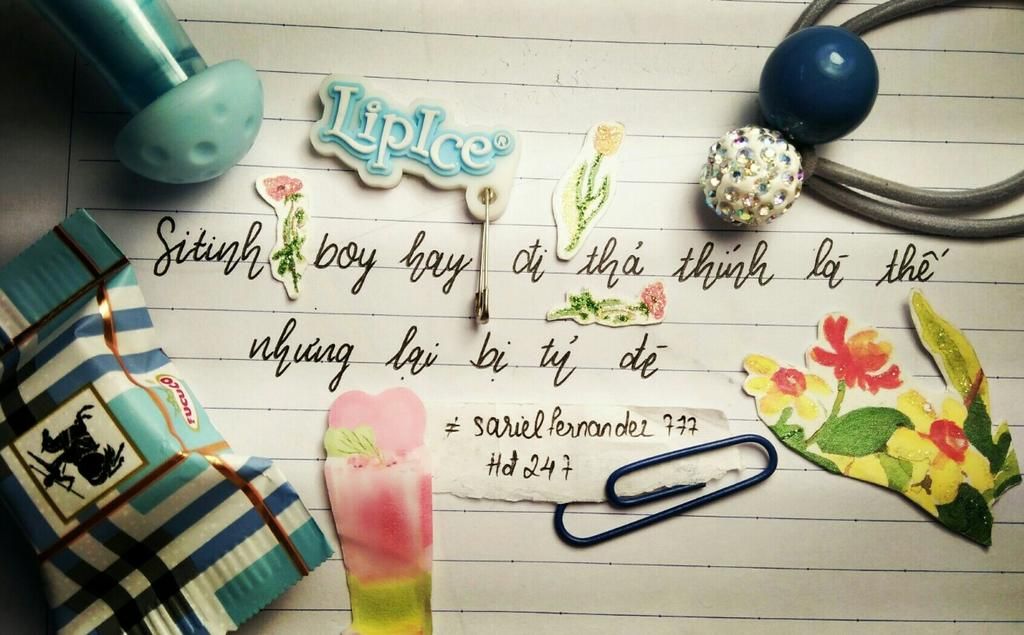 LipIce®
Sitinh boy hay đi thả thính là thế
nhưng lại bị tỷ đè
≠ sarielfernandez 777
Hot 247
FUCUZO